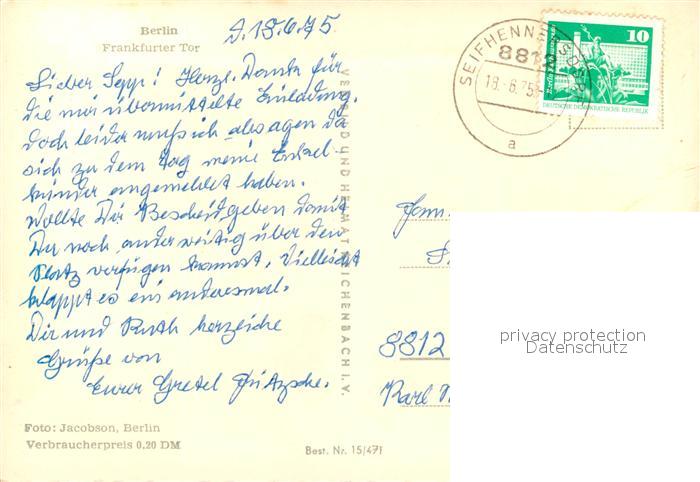 Berlin
Frankfurter Tor
D. 18.6.75.
Lieber Sepp! Herzl. Dank für
die mir übermittelte Einladung.
Doch leider muß ich absagen da
sich zu dem Tag meine Enkel-
kinder angemeldet haben.
Wollte Dir Bescheid geben damit
Du noch anderweitig über den
Platz verfügen kannst. Vielleicht
klappt es ein andermal.
Dir und Ruth herzliche
Grüße von
Eurer Gretel Fritzsche.
Foto: Jacobson, Berlin
Verbraucherpreis 0,20 DM
Best. Nr. 15/471
VERLAG BILD UND HEIMAT REICHENBACH I. V.
SEIFHENNERSDORF
881
18.-6.75
a
10
DEUTSCHE DEMOKRATISCHE REPUBLIK
8812
Karl
privacy protection
Datenschutz